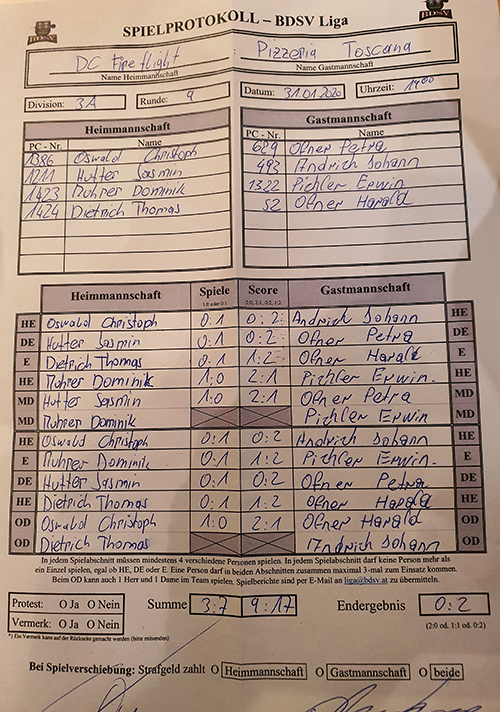 SPIELPROTOKOLL – BDSV Liga
BDSV
BDSV
DC Fireflight Pizzeria Toscana
Name Heimmannschaft Name Gastmannschaft
Division: 3A Runde: 9 Datum: 31.01.2020 Uhrzeit: 19:00
Heimmannschaft Gastmannschaft
PC - Nr. Name PC - Nr. Name
1386 Oswald Christoph 689 Ofner Petra
1211 Hutter Jasmin 493 Andrich Johann
1423 Muhrer Dominik 1322 Pichler Erwin
1424 Dietrich Thomas 52 Ofner Harald
Heimmannschaft Spiele Score Gastmannschaft
1:0 oder 0:1 2:0, 2:1, 0:2, 1:2
HE Oswald Christoph 0:1 0:2 Andrich Johann HE
DE Hutter Jasmin 0:1 0:2 Ofner Petra DE
E Dietrich Thomas 0:1 1:2 Ofner Harald E
HE Muhrer Dominik 1:0 2:1 Pichler Erwin. HE
MD Hutter Jasmin 1:0 2:1 Ofner Petra MD
MD Muhrer Dominik Pichler Erwin MD
HE Oswald Christoph 0:1 0:2 Andrich Johann HE
E Muhrer Dominik 0:1 1:2 Pichler Erwin. E
DE Hutter Jasmin 0:1 0:2 Ofner Petra DE
HE Dietrich Thomas 0:1 1:2 Ofner Harald HE
OD Oswald Christoph 1:0 2:1 Ofner Harald OD
OD Dietrich Thomas Andrich Johann OD
In jedem Spielabschnitt müssen mindestens 4 verschiedene Personen spielen. In jedem Spielabschnitt darf keine Person mehr als
ein Einzel spielen, egal ob HE, DE oder E. Eine Person darf in beiden Abschnitten zusammen maximal 3-mal zum Einsatz kommen.
Beim OD kann auch 1 Herr und 1 Dame im Team spielen. Spielberichte sind per E-Mail an liga@bdsv.at zu übermitteln.
Protest: O Ja O Nein Summe 3:7 9:17 Endergebnis 0:2
Vermerk: O Ja O Nein (2:0 od. 1:1 od. 0:2)
*) Ein Vermerk kann auf der Rückseite gemacht werden (bitte mitsenden)
Bei Spielverschiebung: Strafgeld zahlt O Heimmannschaft O Gastmannschaft O beide